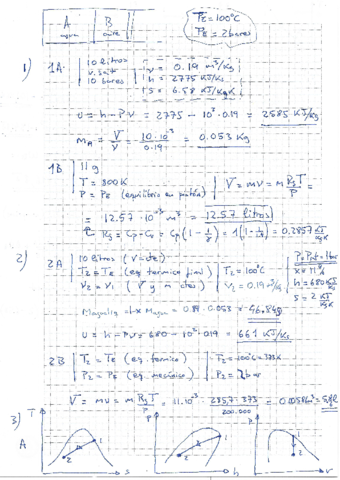 A
agua
B
aire
TE = 100°C
PE = 2 bares
1)
1A
10 litros
v. sat
10 bares
v = 0.19 m³/kg
h = 2775 KJ/Kg
s = 6.58 KJ/KgK
u = h - Pv = 2775 - 10³·0.19 = 2585 KJ/Kg
MA = V/v = 10·10⁻³/0.19 = 0.053 Kg
1B
11 g
T = 800K
P = PE (equilibrio en
V = mv = m RgT/P =
= 12.57·10⁻³ m³ = 12.57 litros
Rg = Cp - Cv = Cp(1 - 1/γ) = 1(1 - 1/1.4) = 0.2857 KJ/KgK
2)
2A
10 litros (V = cte)
T2 = TE (eq termico final)
v2 = v1 (V y m ctes)
T2 = 100°C
v2 = 0.19 m³/kg
x = 11%
h = 680 KJ/Kg
s = 2 KJ/KgK
= 1-x MAgua = 0.89·0.053 =
u = h - Pv = 680 - 10²·0.19 = 661 KJ/Kg
2B
T2 = TE (eq. termico)
P2 = PE (eq. mecánico)
T2 = 100°C = 373K
P2 = 2 bar
V = mv = m RgT/P = 11·10⁻³ 285.7·373/200.000 = 0.00586 m³
3)
A
T
1
2
s
P
1
2
h
P
1
2
v